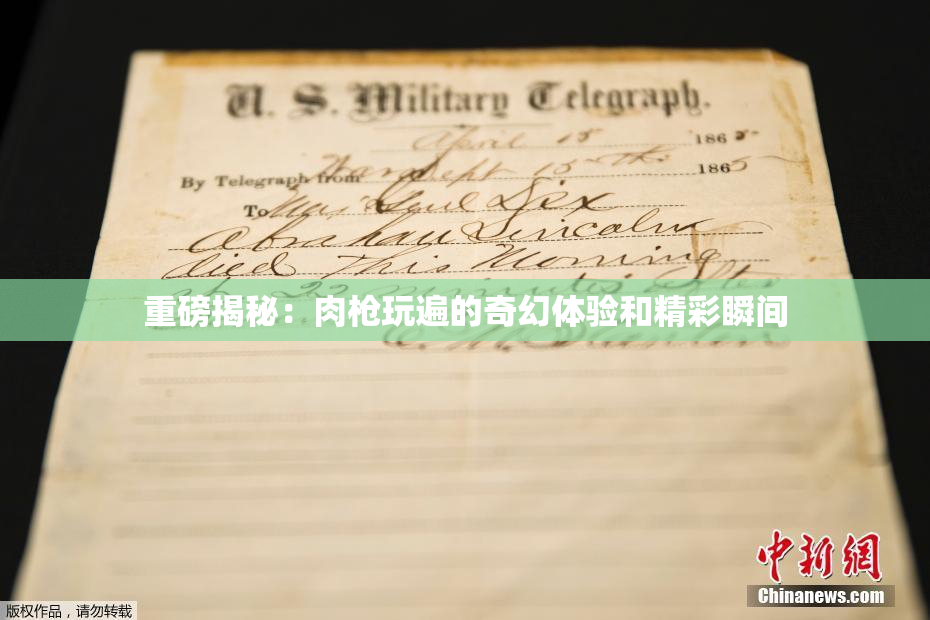 U. S. Military Telegraph.
April 15 1865
By Telegraph from War Dept 15th 1865
To Maj Genl Dix
Abraham Lincoln
died This Morning
at 22 minutes after
重磅揭秘：肉枪玩遍的奇幻体验和精彩瞬间
中新网
Chinanews.com
版权作品，请勿转载